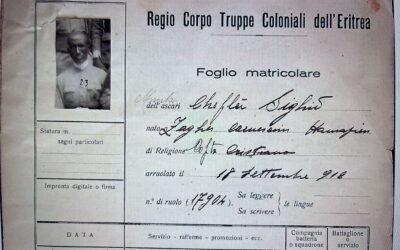 Regio Corpo Truppe Coloniali dell'Eritrea
Foglio matricolare
23
dell'ascari
nato
di Religione Cofta Cristiana
arruolato il 18 Settembre 912
n.° di ruolo (17904) Sa leggere
Sa scrivere
le lingue
Statura m.
segni particolari
Impronta digitale o firma
DATA
Servizio - rafferme - promozioni - ecc.
Compagnia
batteria
o squadrone
Battaglione
o
servizio